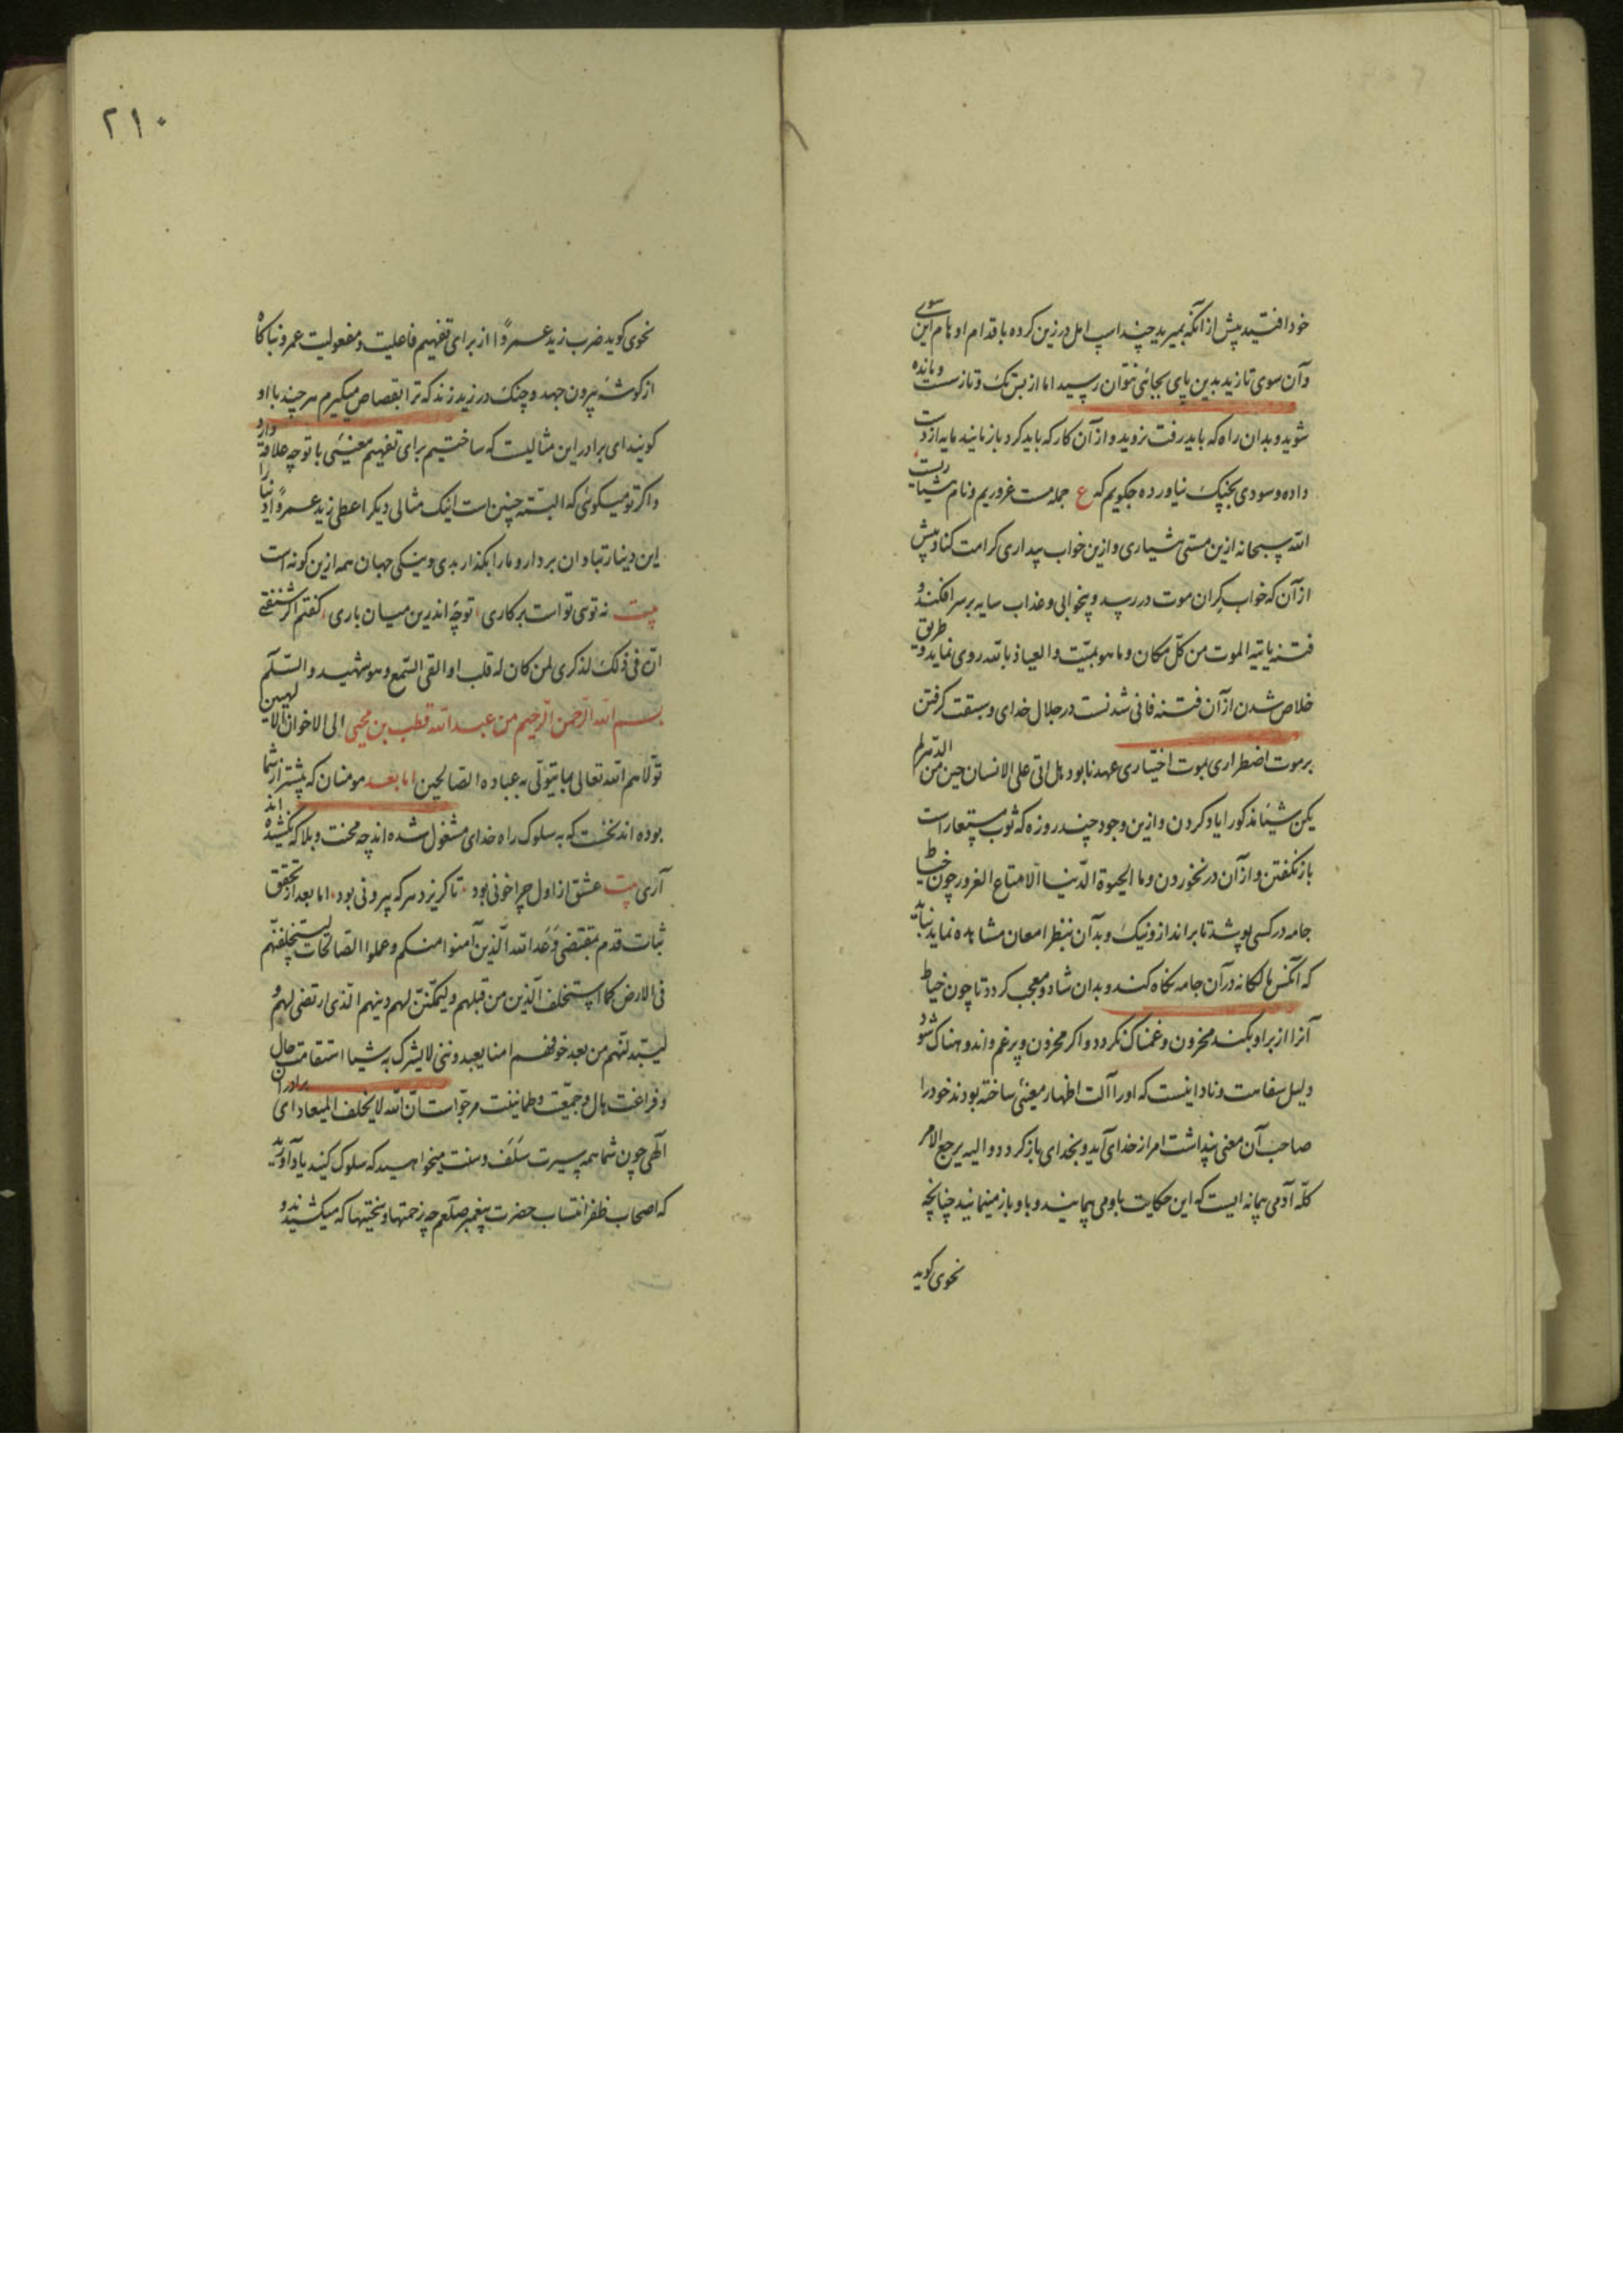 خود افتید پیش از آنکه بمیرید چند اسب امل در زین کرده باقدام اوهام این سوی
و آن سوی تازید بدین پای بجائی نتوان رسید اما از بس تک و تاز سست و مانده
شوید و بدان راه که باید رفت نروید و از آن کار که باید کرد باز مانید مایه از دست
داده و سودی بچنک نیاورده چکویم که ع جمله مست غروریم و نام هشیاریست
الله سبحانه ازین مستی هشیاری و ازین خواب بیداری کرامت کناد پیش
از آن که خواب کران موت در رسد و بیخوابی و عذاب سایه بر سر افکند و
فتنه یاتیه الموت من کل مکان و ما هو بمیت و العیاذ بالله روی نماید و طریق
خلاص شدن از آن فتنه فانی شدنست در جلال خدای و سبقت کرفتن
بر موت اضطراری بموت اختیاری عهد نابود هل اتی علی الانسان حین من الدهر لم
یکن شیئا مذکورا یاد کردن و ازین وجود چند روزه که ثوب مستعار است
باز نکفتن و از آن در نخوردن و ما الحیوة الدنیا الا متاع الغرور چون خیاط
جامه در کسی پوشد تا براندازد و نیک و بد آن بنظر امعان مشاهده نماید نباید
که آنکس مالکانه در آن جامه نکاه کند و بدان شاد و معجب کردد تا چون خیاط
آنرا از بر او بکند محزون و غمناک نکردد و اکر محزون و پر غم و اندوهناک شود
دلیل سفاهت و نادانیست که او را آلت اظهار معنئی ساخته بودند خود را
صاحب آن معنی پنداشت امر از خدای آید و بخدای باز کردد و الیه یرجع الامر
کله آدمی پیمانه ایست که این حکایت باو می پیمایند و باو باز مینمایند چنانچه
نحوی کوید
۲۱۰
نحوی کوید ضرب زید عمروًا از برای تفهیم فاعلیت و مفعولیت عمرو نباکاه
از کوشه بیرون جهد و چنک در زید زند که ترا بقصاص میکیرم هر چند با او
کویند ای برادر این مثالیست که ساختیم برای تفهیم معنیی با تو چه علاقه دارد
و اکر تو میکوئی که البته چنین است اینک مثالی دیکر اعطی زید عمروًا دینارا
این دینار بتاوان بردار و ما را بکذار بدی و نیکی جهان همه ازین کونه است
بیت نه توی تو است بر کاری توچه اندرین میان باری کفتم اکر شنفتی
ان فی ذلک لذکری لمن کان له قلب او القی السمع و هو شهید و السلم
بسم الله الرحمن الرحیم من عبد الله قطب بن محیی الی الاخوان الالهیین
تولاهم الله تعالی بما یتولی به عباده الصالحین اما بعد مومنان که پیشتر از شما
بوده اند نخست که به سلوک راه خدای مشغول شده اند چه محنت و بلا که نکشیده اند
آری بیت عشق از اول چرا خونی بود تا کریزد هر که بیرونی بود اما بعد از تحقق
ثبات قدم بمقتضی وعد الله الذین آمنوا منکم و عملوا الصالحات لیستخلفنهم
فی الارض کما استخلف الذین من قبلهم و لیمکنن لهم دینهم الذی ارتضی لهم و
لیبدلنهم من بعد خوفهم امنا یعبدوننی لا یشرک به شیئا استقامت حال
و فراغت بال و جمعیت و طمانینت مرجو است ان الله لا یخلف المیعاد ای برادران
الهی چون شما همه بسیرت سلف و سنت میخواهید که سلوک کنید یاد آورید
که اصحاب ظفر انتساب حضرت پیغمبر صلعم چه زحمتها و سختیها که میکشیدند و